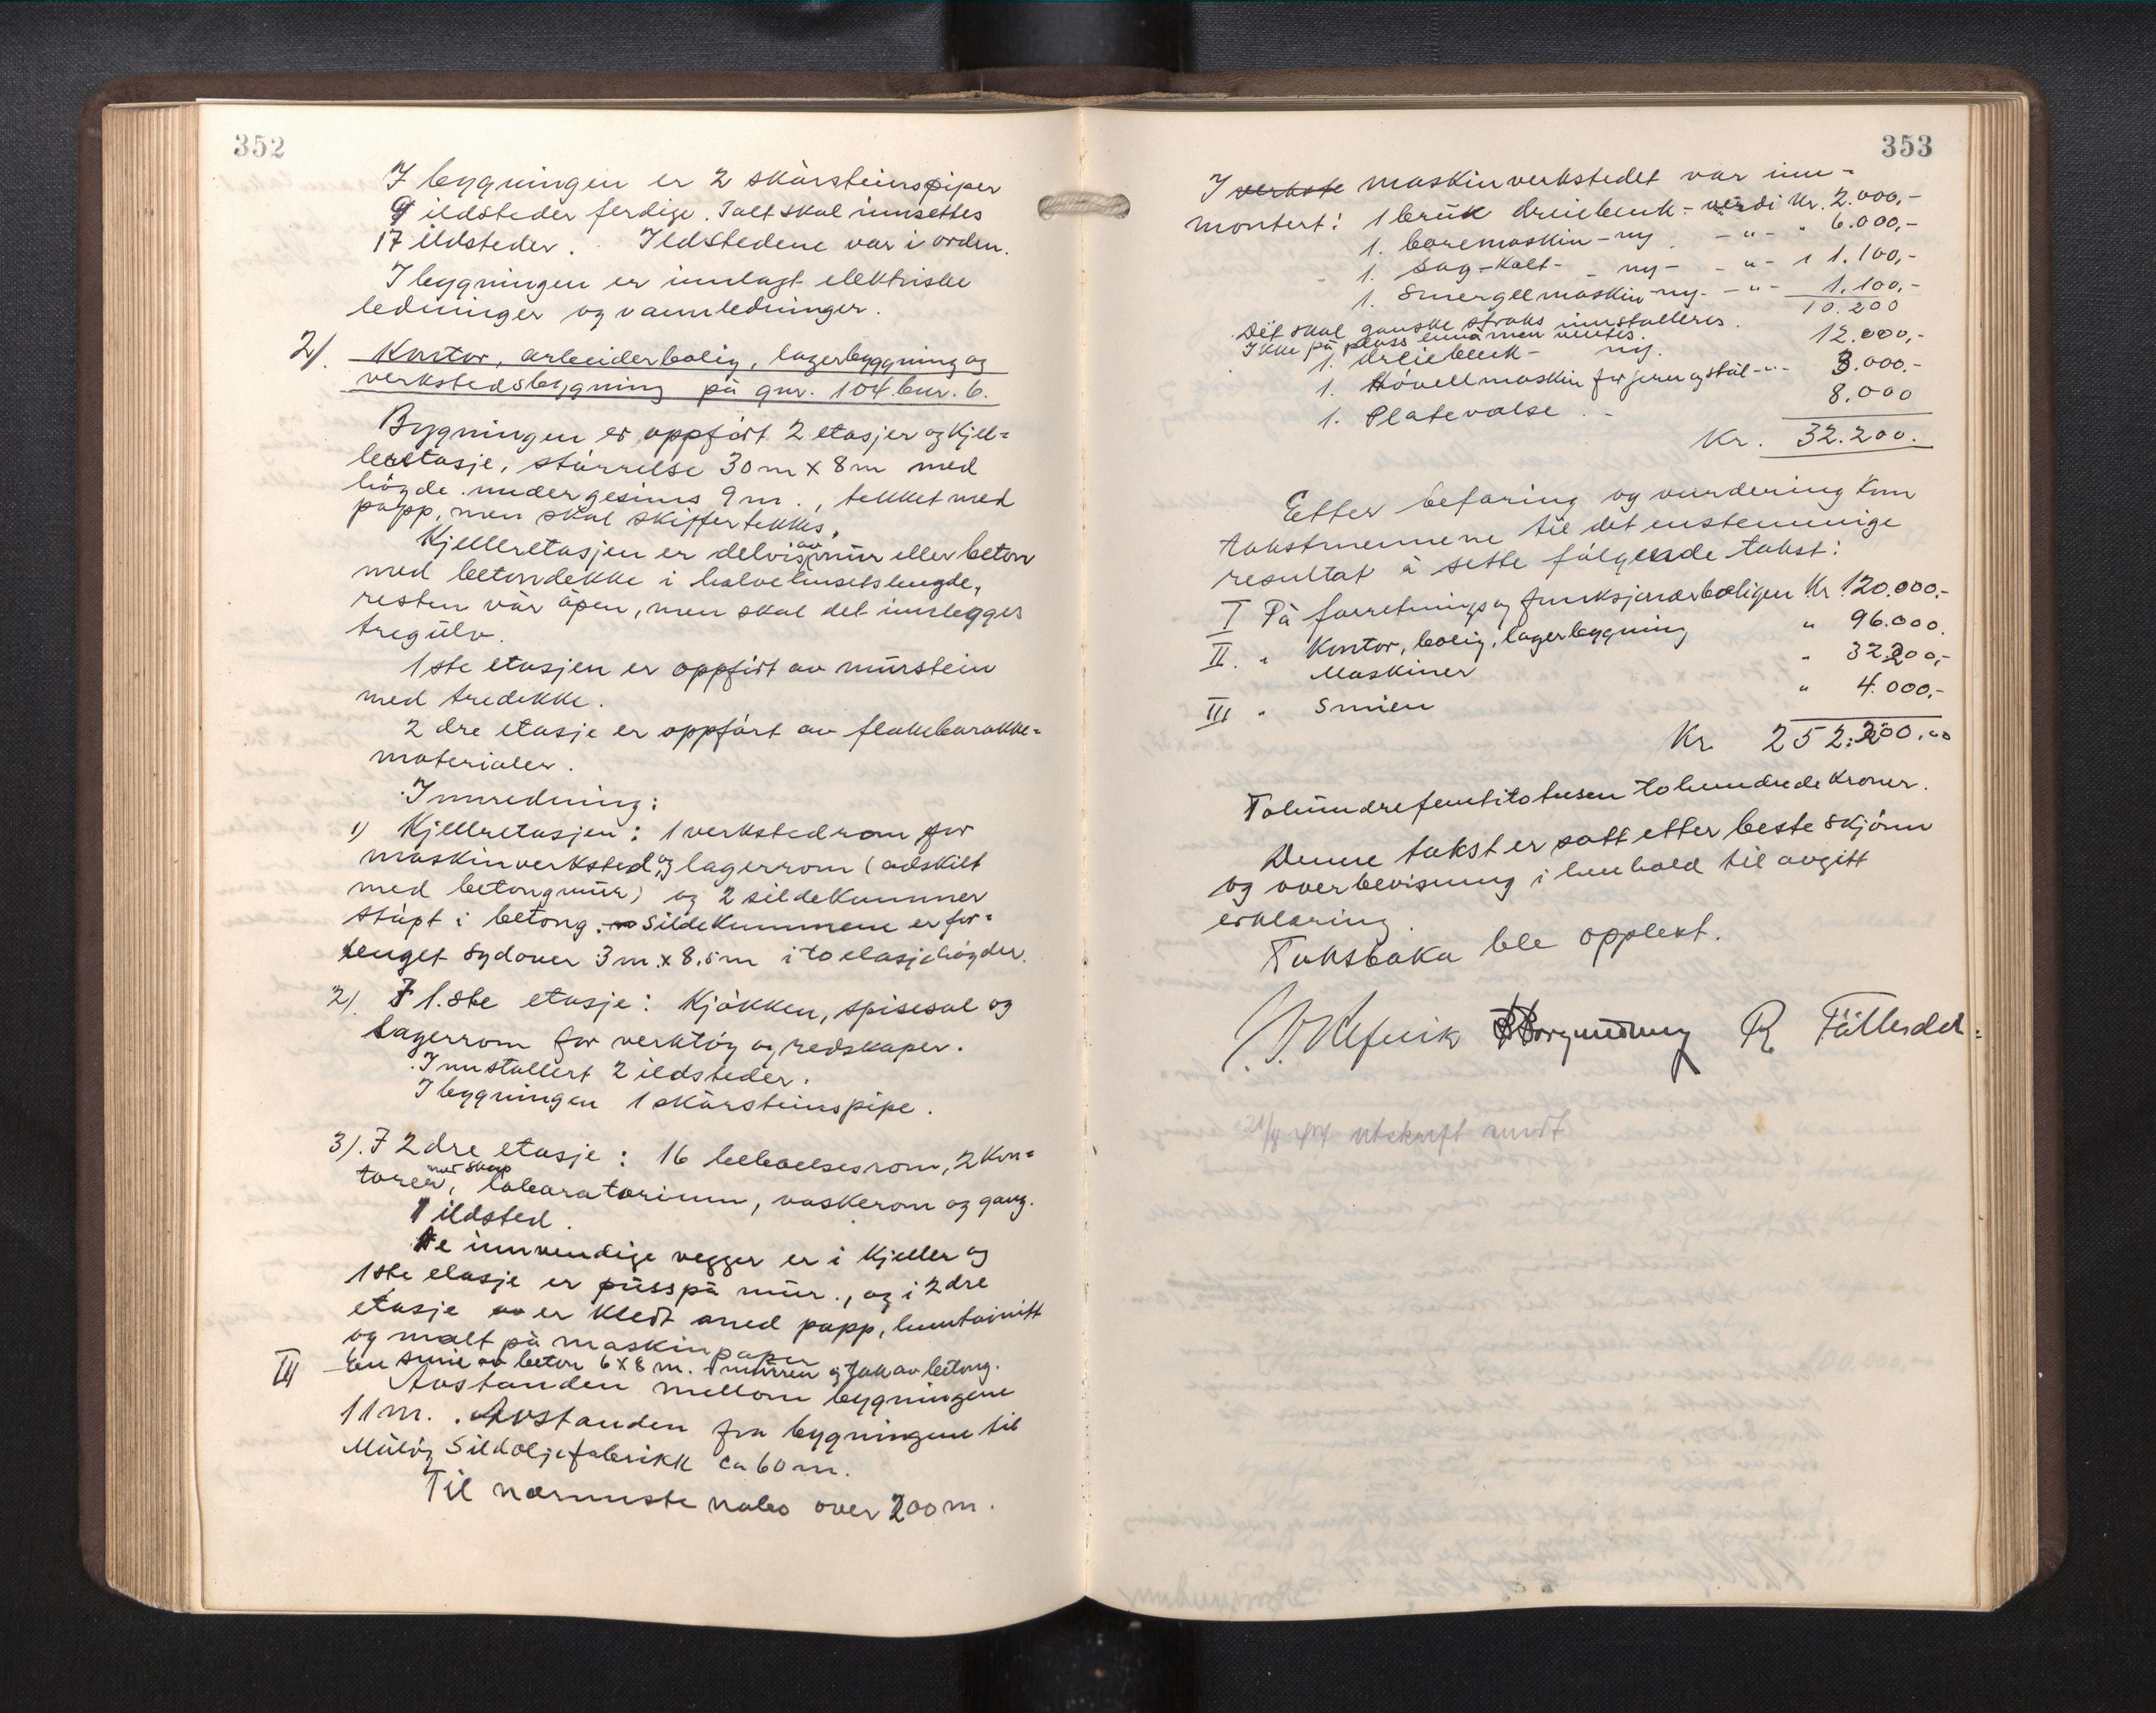 352
I bygningen er 2 skårsteinspiper
9 ildsteder ferdige. Ialt skal innsettes
17 ildsteder. Ildstedene var i orden.
I bygningen er innlagt elektriske
ledninger og vannledninger.
2). Kontor, arbeiderbolig, lagerbyggning og
verkstedsbygning på gnr. 104 bnr. 6.
Bygningen er oppført 2 etasjer og kjel=
leretasje, størrelse 30 m x 8 m med
høgde under gesims 9 m., tekket med
papp, men skal skiffertekkes.
Kjelleretasjen er delvis av mur eller beton
med betondekke i halve huselslengde,
resten var åpen, men skal det innlegges
tregulv.
1ste etasjen er oppført av murstein
med tredekke.
2 dre etasje er oppført av flakebarakke=
materialer.
Innredning:
1) Kjelleretasjen: 1 verkstedrom for
maskinverksted, og lagerrom (adskilt
med betongmur) og 2 sildekummer
støpt i betong. Sildekummene er for=
lenget sydover 3 m. x 8.5 m i to etasjehøgder.
2). I 1.ste etasje: Kjøkken, spisesal og
lagerrom for verktøy og redskaper.
Innstallert 2 ildsteder.
I bygningen 1 skårsteinspipe.
3). I 2 dre etasje: 16 beboelsesrom, 2 kon=
torer, med skap laboratorium, vaskerom og gang.
1 ildsted.
De innvendige vegger er i kjeller og
1ste etasje er puss på mur., og i 2 dre
etasje er kledt med papp, huntonitt
og malt på maskinpapir
III En smie av beton 6 x 8 m. murer og tak av betong.
Avstanden mellom bygningene
11 m. Avstanden fra bygningene til
Måløy Sildoljefabrikk ca 60 m.
Til nærmeste nabo over 200 m.
353
I verkste maskinverkstedet var inn=
montert: 1 brukt dreiebenk - verdi kr. 2.000,-
1. boremaskin - ny - " - " 6.000,-
1. Sag - Kalt - ny - - " - " 1.100,-
1. Smergelmaskin - ny. - " - 1.100,-
10.200
Det skal ganske straks innstalleres.
Ikke på plass ennå men ventes.
1. dreiebenk - ny. 12.000,-
1. Høvellmaskin for jern og stål - " - 3.000.-
1. Platevalse. - 8.000
Kr. 32.200.
Etter befaring og vurdering kom
takstmennene til det enstemmige
resultat å sette følgende takst:
I På forretnings og funksjonærboligen kr. 120.000.-
II. " Kontor, bolig, lagerbygning " 96.000.
Maskiner " 32200,-
III " Smien " 4.000,-
Kr. 252.200,00
Tohundrefemtitotusen tohundrede kroner.
Denne takst er satt etter beste skjønn
og overbevisning i henhold til avgitt
erklæring.
Takstboka ble opplest.
R.
utskrift sendt